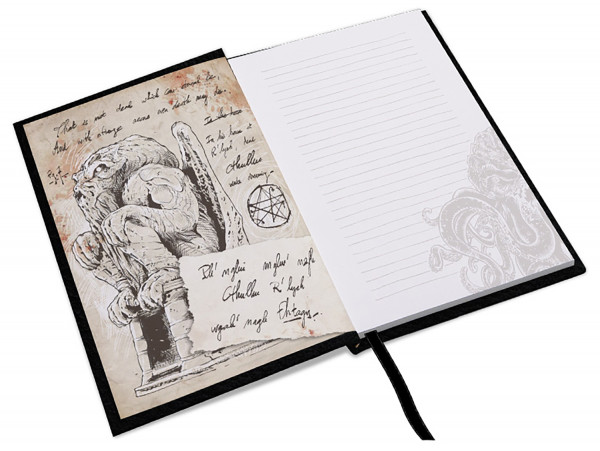 That is not dead which can eternal lie.
And with strange aeons even death may die.
In his house
In his house at
R'lyeh, dead
Cthulhu
waits dreaming.
Ph' nglui mglw' nafh
Cthulhu R'lyeh
wgah' nagl Fhtagn.